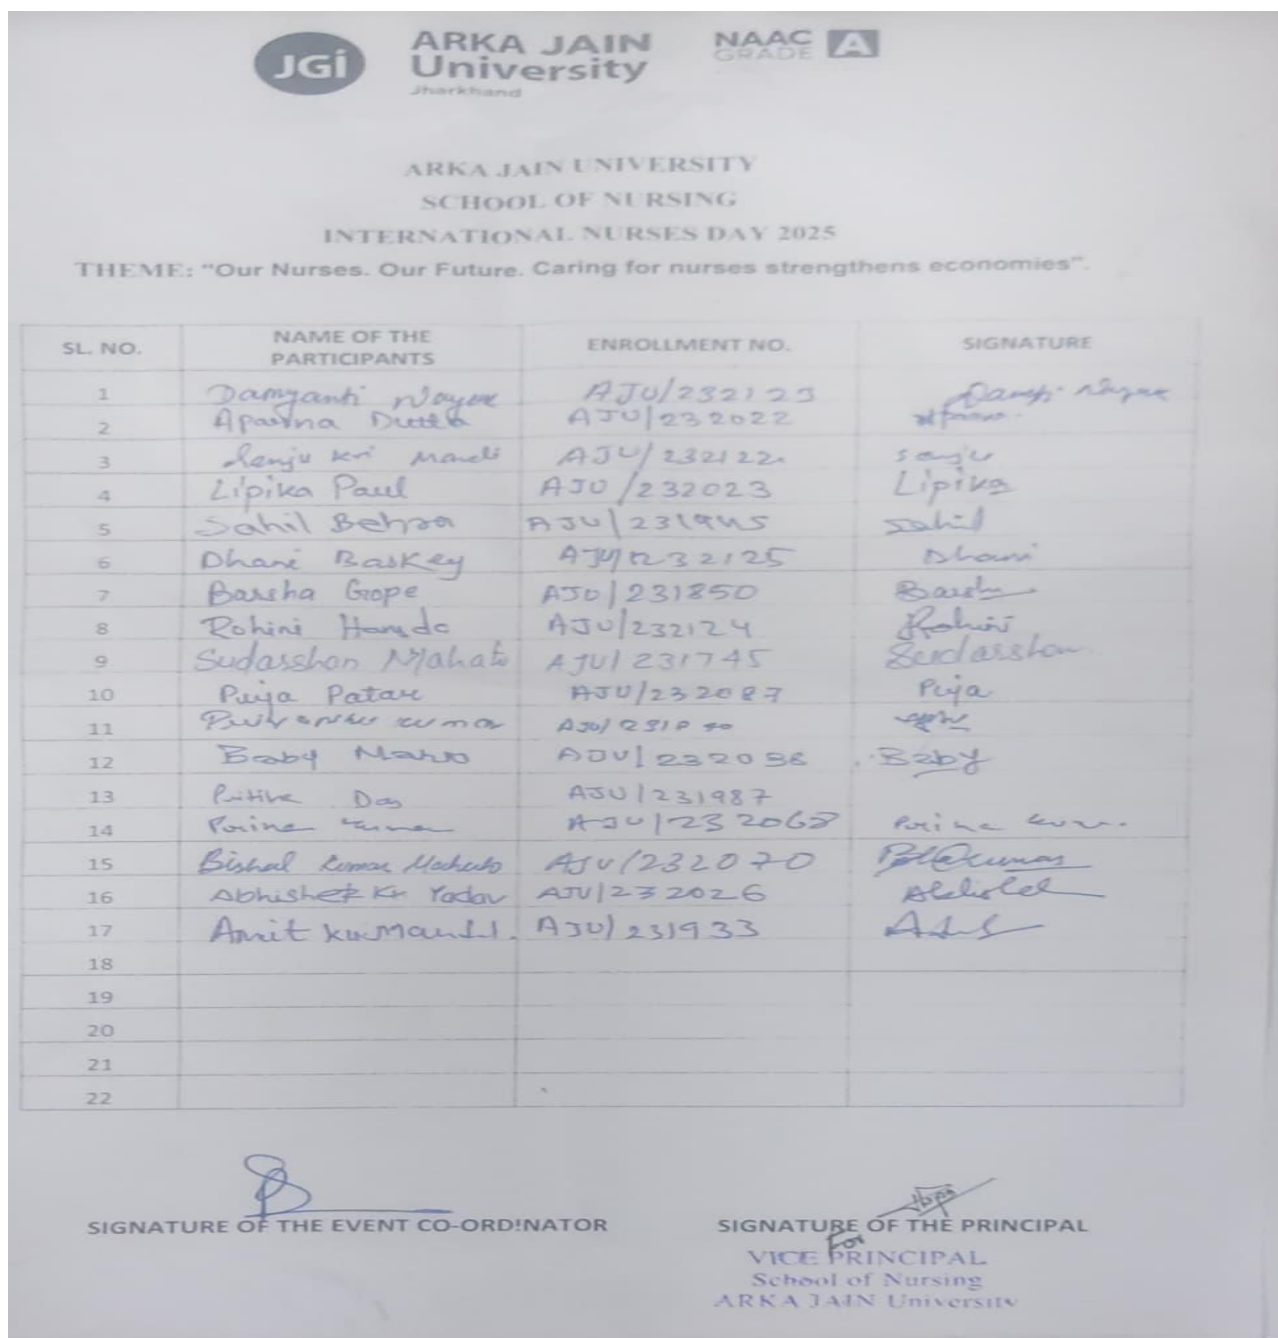 JGi
ARKA JAIN
University
Jharkhand
NAAC
GRADE A
ARKA JAIN UNIVERSITY
SCHOOL OF NURSING
INTERNATIONAL NURSES DAY 2025
THEME: “Our Nurses. Our Future. Caring for nurses strengthens economies”.
SL. NO. NAME OF THE PARTICIPANTS ENROLLMENT NO. SIGNATURE
1 Damyanti AJU/232123
2 Aparna Dutta AJU/232022
3 AJU/232122 sanju
4 Lipika Paul AJU/232023 Lipika
5 Sahil Behra AJU/231945 Sahil
6 Dhani Baskey AJU/232125 Dhani
7 Barsha Gope AJU/231850
8 Rohini Hansda AJU/232124 Rohini
9 Sudarshan Mahato AJU/231745 Sudarshan
10 Puja Patar AJU/232087 Puja
11 kumar
12 Baby AJU/232086 Baby
13 Das AJU/231987
14 AJU/232068
15 Bishal Kumar Mahato AJU/232070
16 Abhishek Kr Yadav AJU/232026
17 Amit AJU/231933
18
19
20
21
22
SIGNATURE OF THE EVENT CO-ORDINATOR
SIGNATURE OF THE PRINCIPAL
For
VICE PRINCIPAL
School of Nursing
ARKA JAIN University